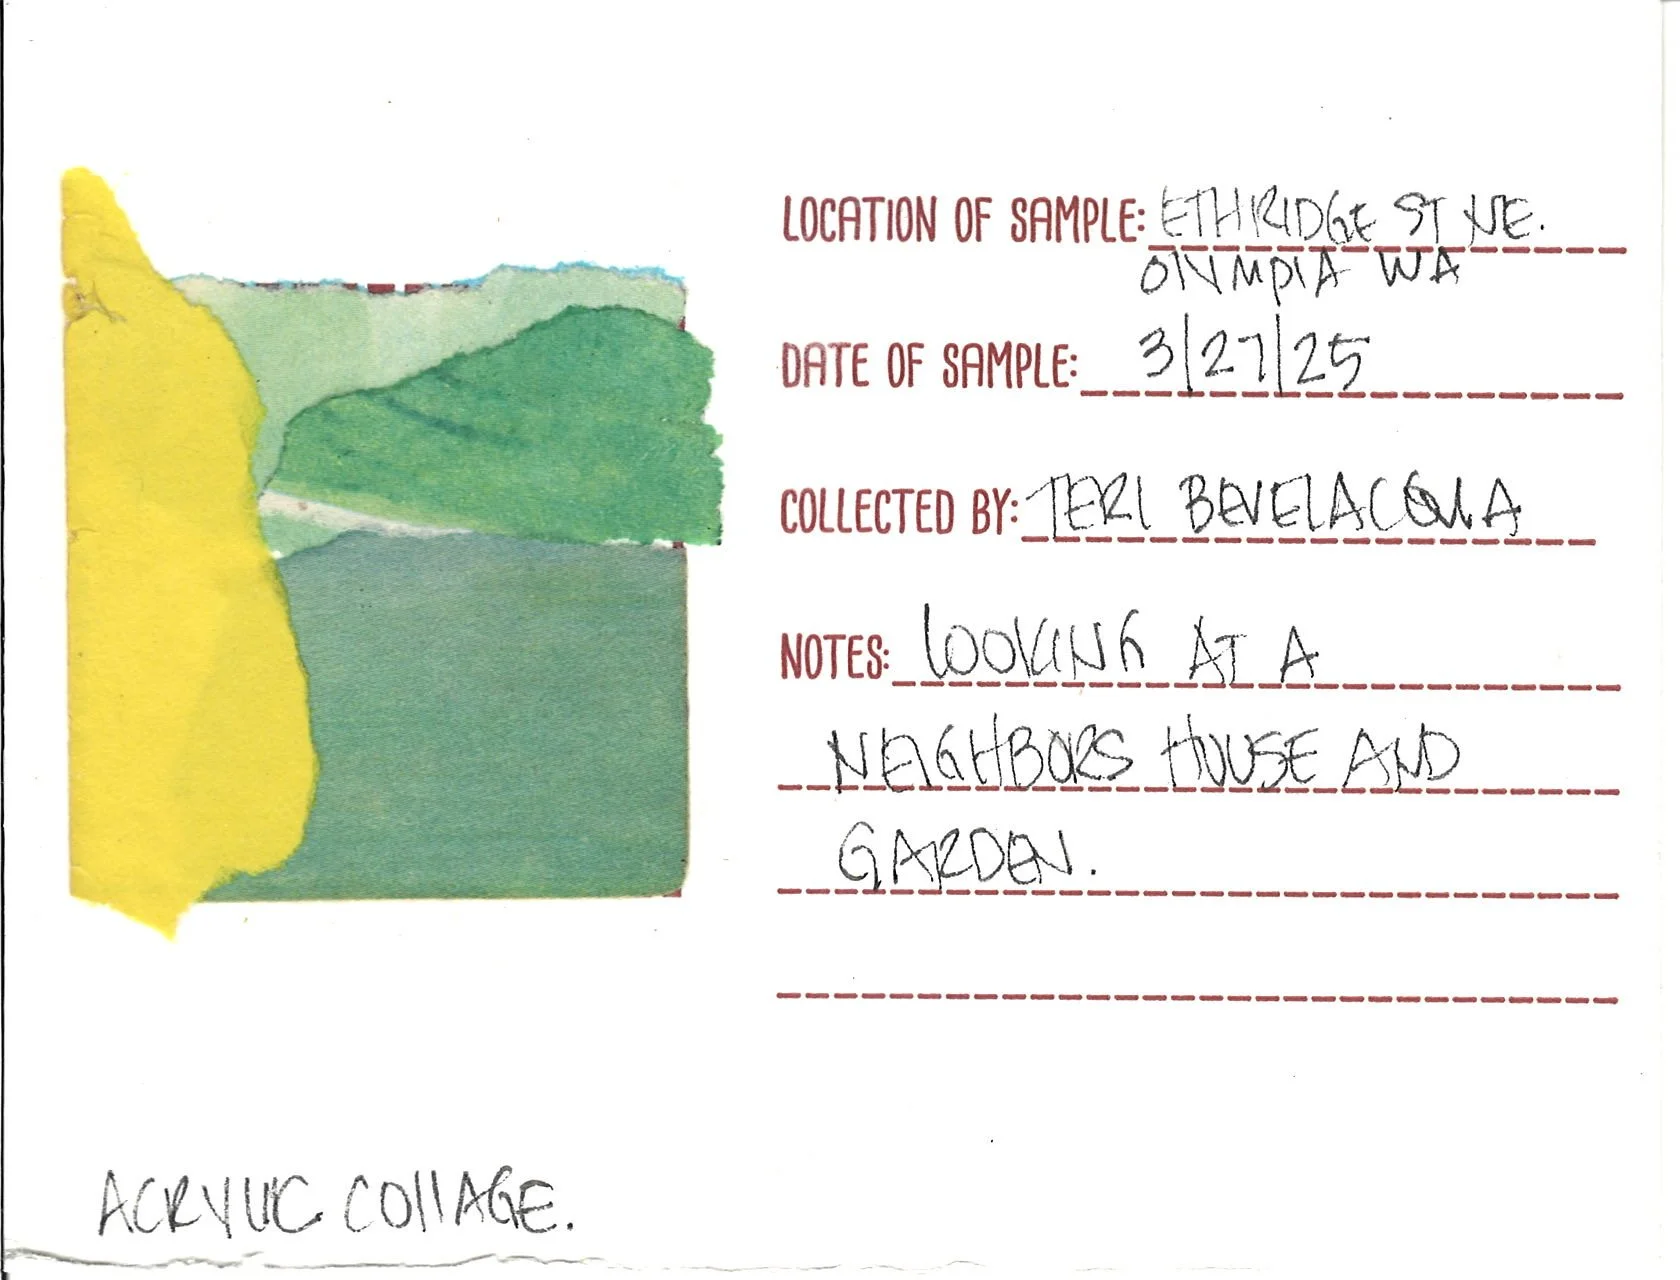 LOCATION OF SAMPLE: ETHRIDGE ST NE.
OLYMPIA WA
DATE OF SAMPLE: 3/27/25
COLLECTED BY: TERI BEVELACQUA
NOTES: LOOKING AT A
NEIGHBORS HOUSE AND
GARDEN.
ACRYLIC COLLAGE.